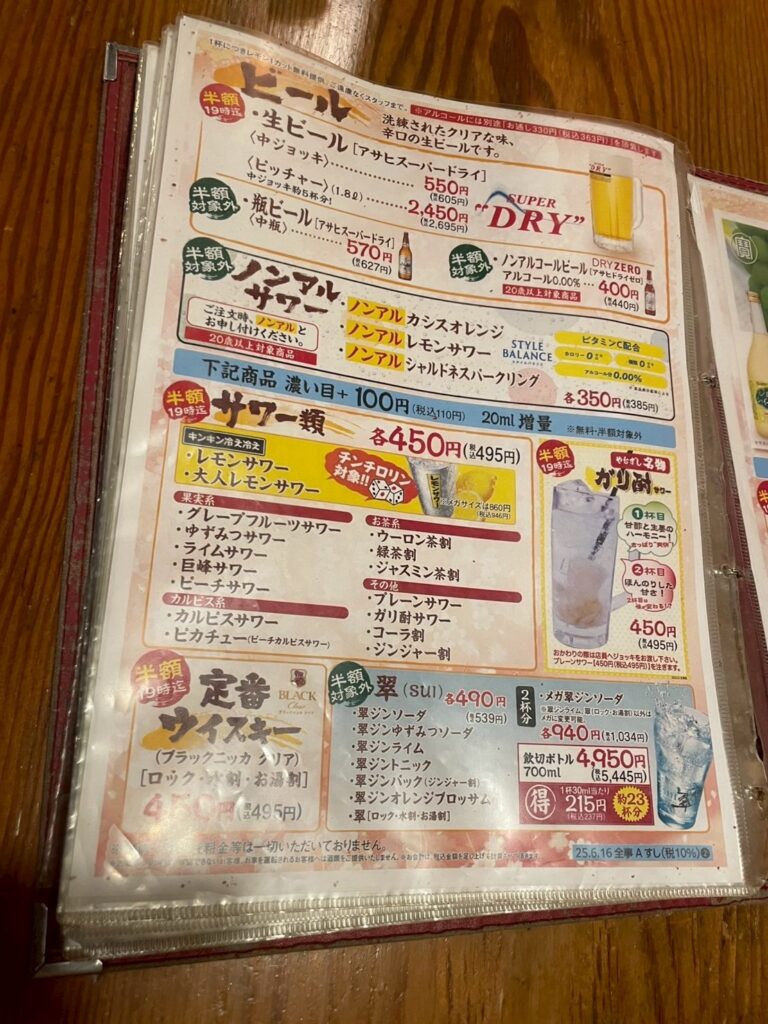 1杯につきレモン1カット無料提供。ご遠慮なくスタッフまで。
※アルコールには別途「お通し330円(税込363円)」を頂戴します
半額
19時迄
ビール
洗練されたクリアな味、
辛口の生ビールです。
・生ビール[アサヒスーパードライ]
〈中ジョッキ〉
550円
(税込605円)
〈ピッチャー〉(1.8ℓ)
2,450円
中ジョッキ約5杯分!
(税込2,695円)
SUPER
"DRY"
半額
対象外
・瓶ビール[アサヒスーパードライ]
〈中瓶〉
570円
(税込627円)
半額
対象外
・ノンアルコールビール[アサヒドライゼロ]
DRYZERO
アルコール0.00%…400円
20歳以上対象商品
(税込440円)
半額
対象外
ノンアル
サワー
ご注文時、ノンアルと
お申し付けください。
20歳以上対象商品
・ノンアルカシスオレンジ
・ノンアルレモンサワー
・ノンアルシャルドネスパークリング
STYLE
BALANCE
ビタミンC配合
アルコール分0.00%
各350円(税込385円)
下記商品 濃い目+100円(税込110円) 20ml増量 ※無料・半額対象外
半額
19時迄
サワー類
各450円(税込495円)
キンキン冷え冷え
・レモンサワー
・大人レモンサワー
チンチロリン
対象!!
レモンサワー
※メガサイズは860円
(税込946円)
果実系
・グレープフルーツサワー
・ゆずみつサワー
・ライムサワー
・巨峰サワー
・ピーチサワー
カルピス系
・カルピスサワー
・ピカチュー(ピーチカルピスサワー)
お茶系
・ウーロン茶割
・緑茶割
・ジャスミン茶割
その他
・プレーンサワー
・ガリ酎サワー
・コーラ割
・ジンジャー割
半額
19時迄
や台ずし名物
ガリ酎
サワー
1杯目
甘酢と生姜の
ハーモニー!
2杯目
ほんのりした
甘さ!
450円
(税込495円)
おかわりの際は店員へジョッキをお渡し下さい。
プレーンサワー[450円(税込495円)]を注ぎます。
半額
19時迄
定番
ウイスキー
BLACK
Clear
(ブラックニッカ クリア)
[ロック・水割・お湯割]
450円(税込495円)
半額
対象外
翠(SUI)
各490円
(税込539円)
・翠ジンソーダ
・翠ジンゆずみつソーダ
・翠ジンライム
・翠ジントニック
・翠ジンバック(ジンジャー割)
・翠ジンオレンジブロッサム
・翠[ロック・水割・お湯割]
2杯分
・メガ翠ジンソーダ
※翠ジンライム、翠(ロック・お湯割)以外は
メガに変更可能。
各940円(税込1,034円)
飲切ボトル 4,950円
700ml
(税込5,445円)
得
1杯30ml当たり
215円
(税込237円)
約23
杯分
翠
料金等は一切いただいておりません。
25.6.16 全事Aすし(税10%)❷
寶